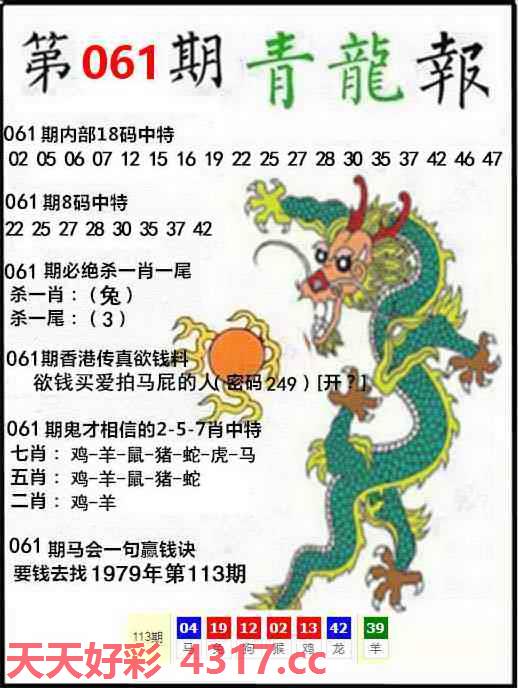 第061期 青龍報
061期内部18码中特
02 05 06 07 12 15 16 19 22 25 27 28 30 35 37 42 46 47
061期8码中特
22 25 27 28 30 35 37 42
061期必绝杀一肖一尾
杀一肖：(兔)
杀一尾：(3)
061期香港传真欲钱料
欲钱买爱拍马屁的人(密码249)[开？]
061期鬼才相信的2-5-7肖中特
七肖：鸡-羊-鼠-猪-蛇-虎-马
五肖：鸡-羊-鼠-猪-蛇
二肖：鸡-羊
061期马会一句赢钱诀
要钱去找1979年第113期
113期 04 19 12 02 13 42 39
马 兔 狗 猴 鸡 龙 羊
天天好彩 4317.cc